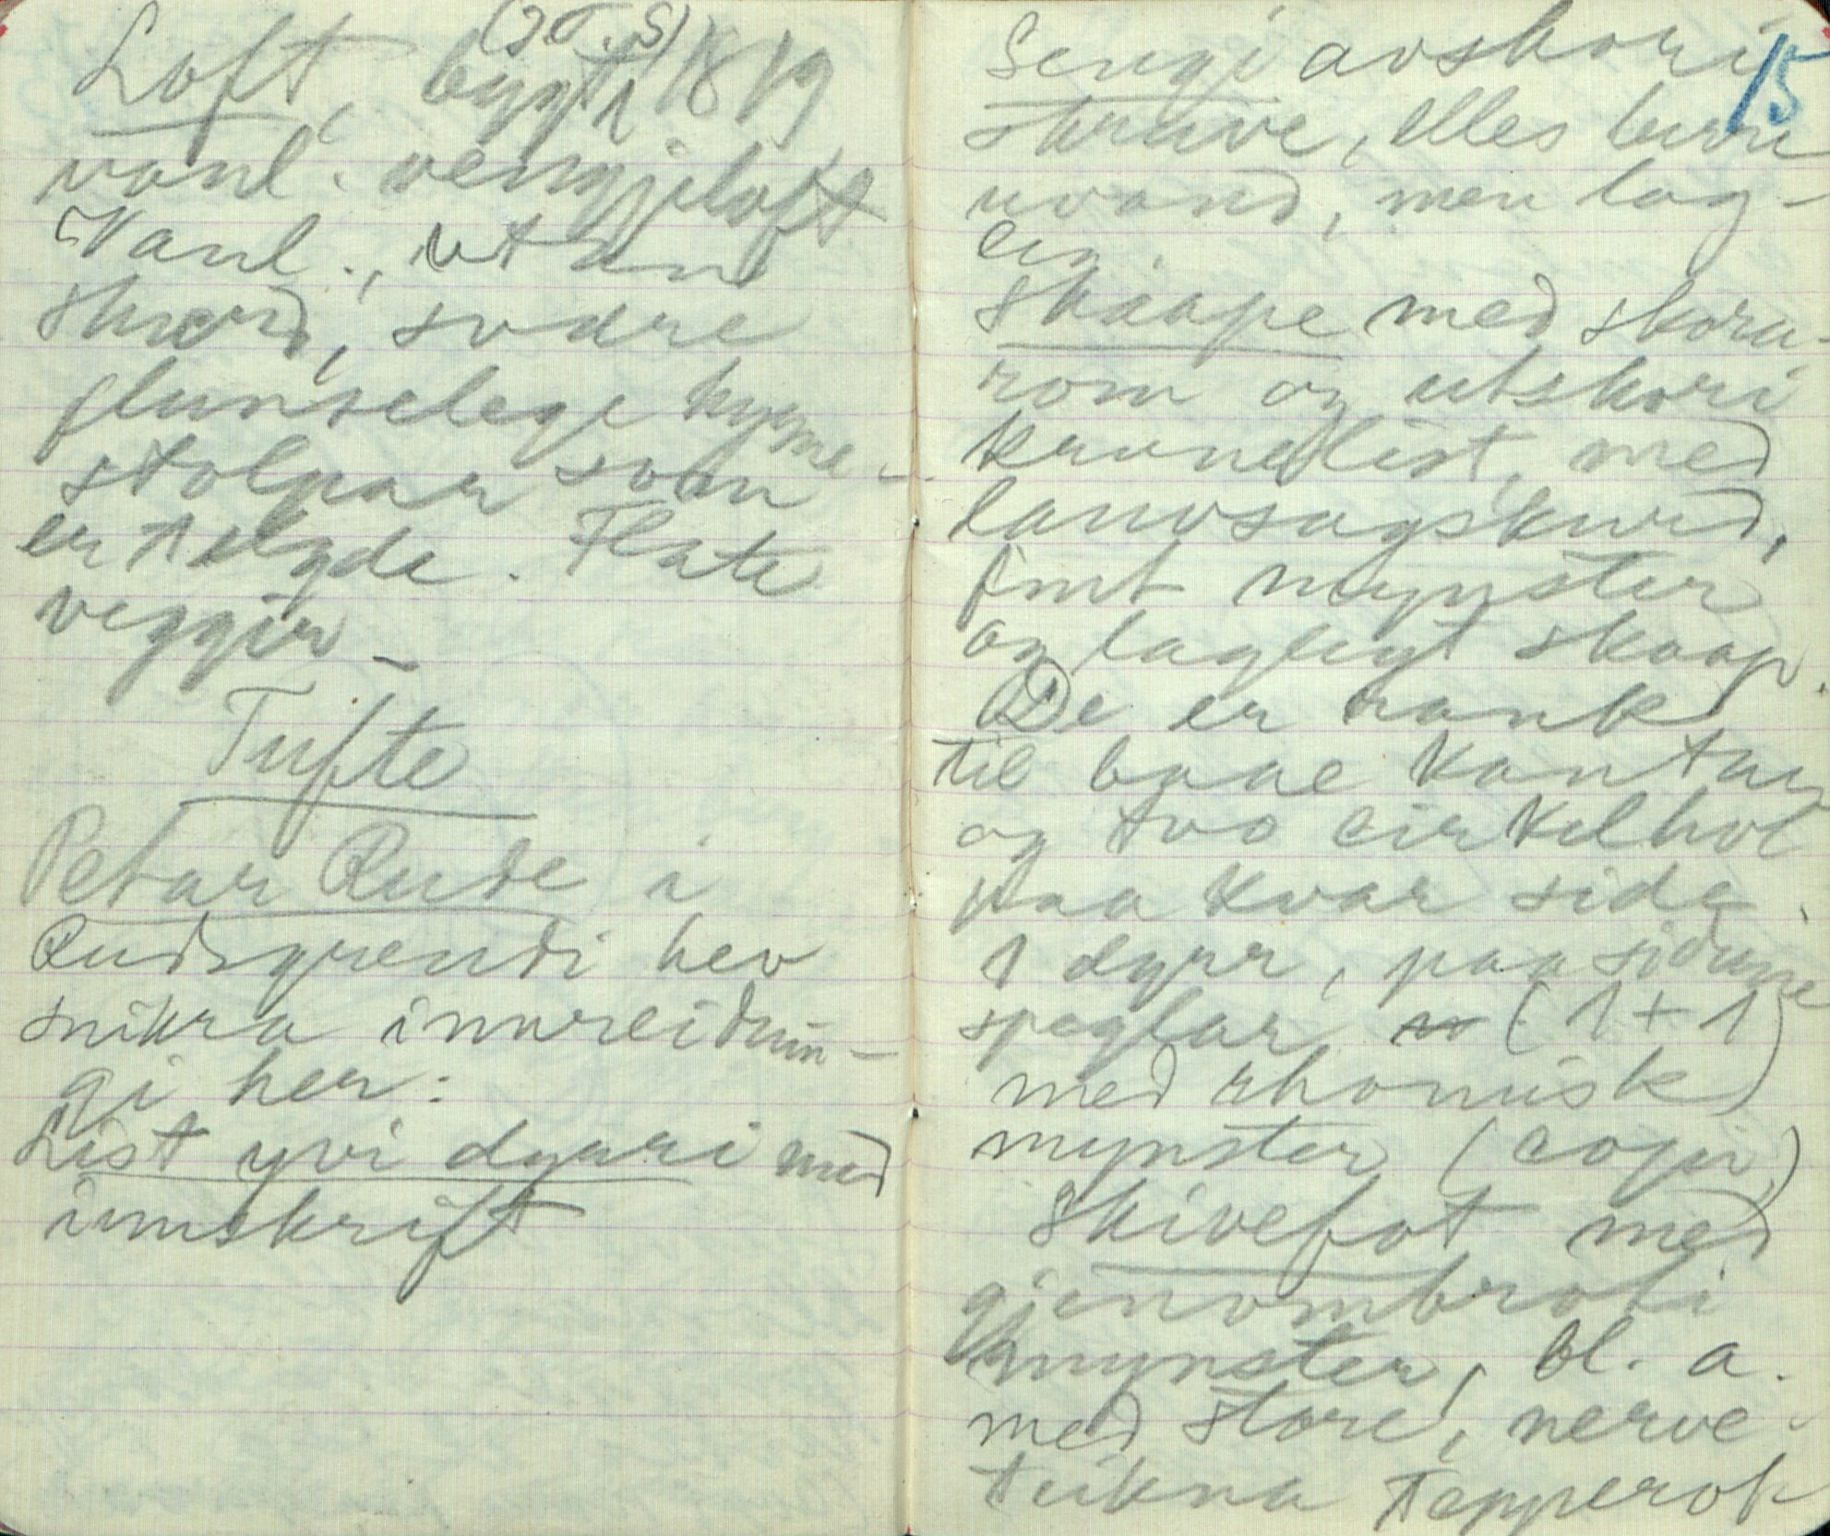 (J.T.S)
Loft, bygt i 1819
vanl. vengjeloft
Vanl., utan
skurd, svære
flunselege hyrne-
stolpar som
er telgde. Flate
veggir –
Tufte
Petar Rude i
Rudsgrendi hev
snikra innreidnin-
gi her:
List yvi dynni med
innskrift
15
Sengi avskori
skruve, elles
uvand, men lag-
leg.
Skaape med skora-
rom og utskori
krunelist, med
lauvsagskurd,
fint mynster
og laglegt skaap.
De er rank
til baae kantar
og tvo cirkelhol
paa kvar side.
1 dyrr, paa sidune
speglar (1+1)
med rhomisk
mynster (copi)
Skivefot med
gjenombroti
mynster, bl. a.
med store, nerve-
teikna